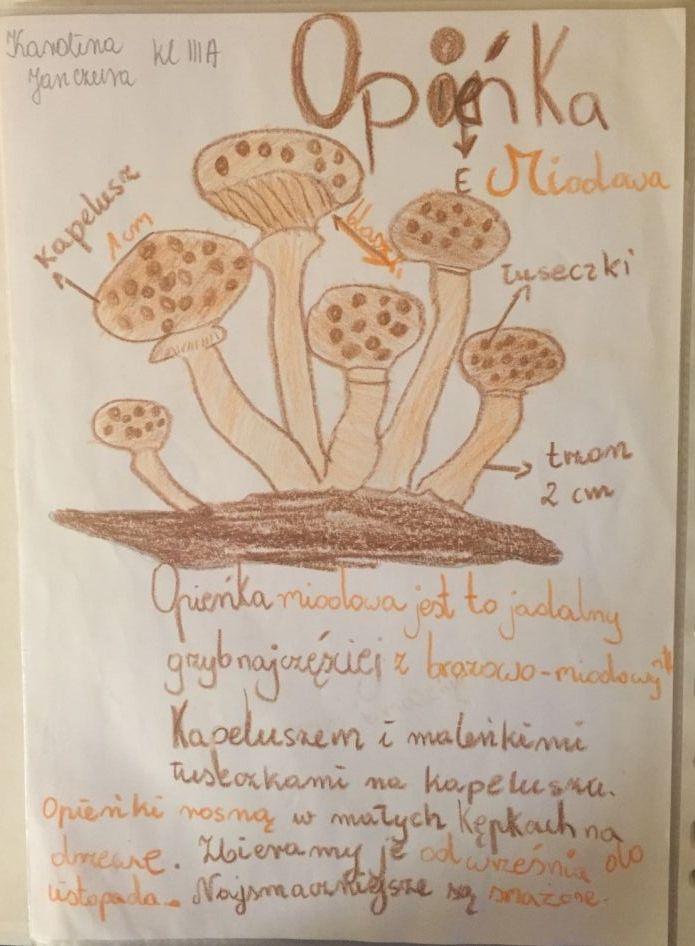 Karolina
Janczura kl III A
Opieńka
E Miodowa
Kapelusz
1 cm
blaszki
łuseczki
trzon
2 cm
Opieńka miodowa jest to jadalny
grzyb najczęściej z brązowo-miodowym
Kapeluszem i maleńkimi
łuseczkami na kapeluszu.
Opieńki rosną w małych kępkach na
drzewie. Zbieramy je od września do
listopada. Najsmaczniejsze są smażone.